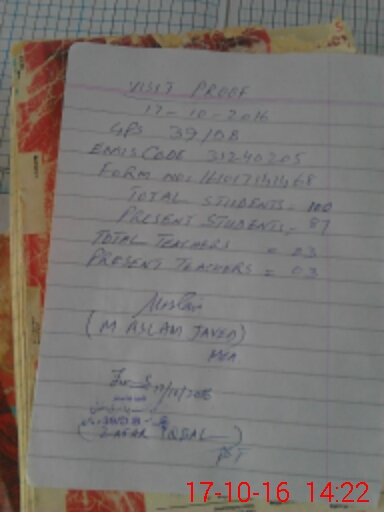 VISIT PROOF
17-10-2016
GPS 39/DB
EMIS CODE 31240205
FORM NO: 161017141468
TOTAL STUDENTS = 100
PRESENT STUDENTS = 87
TOTAL TEACHERS = 03
PRESENT TEACHERS = 03
(M ASLAM JAVED)
MEA
17/10/2016
(ZAFAR IQBAL)
PST
17-10-16 14:22